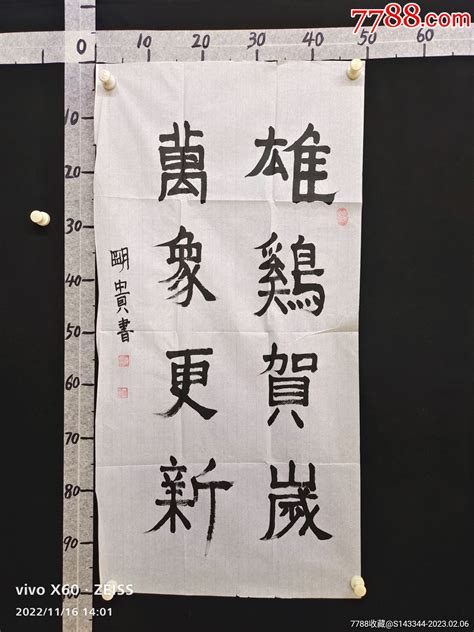 7788.com
0 10 20 30 40 50 60
10
20
30
40
50
60
70
80
90
雄鷄賀歲
萬象更新
明中貝書
vivo X60 · ZEISS
2022/11/16 14:01
7788收藏@S143344-2023.02.06